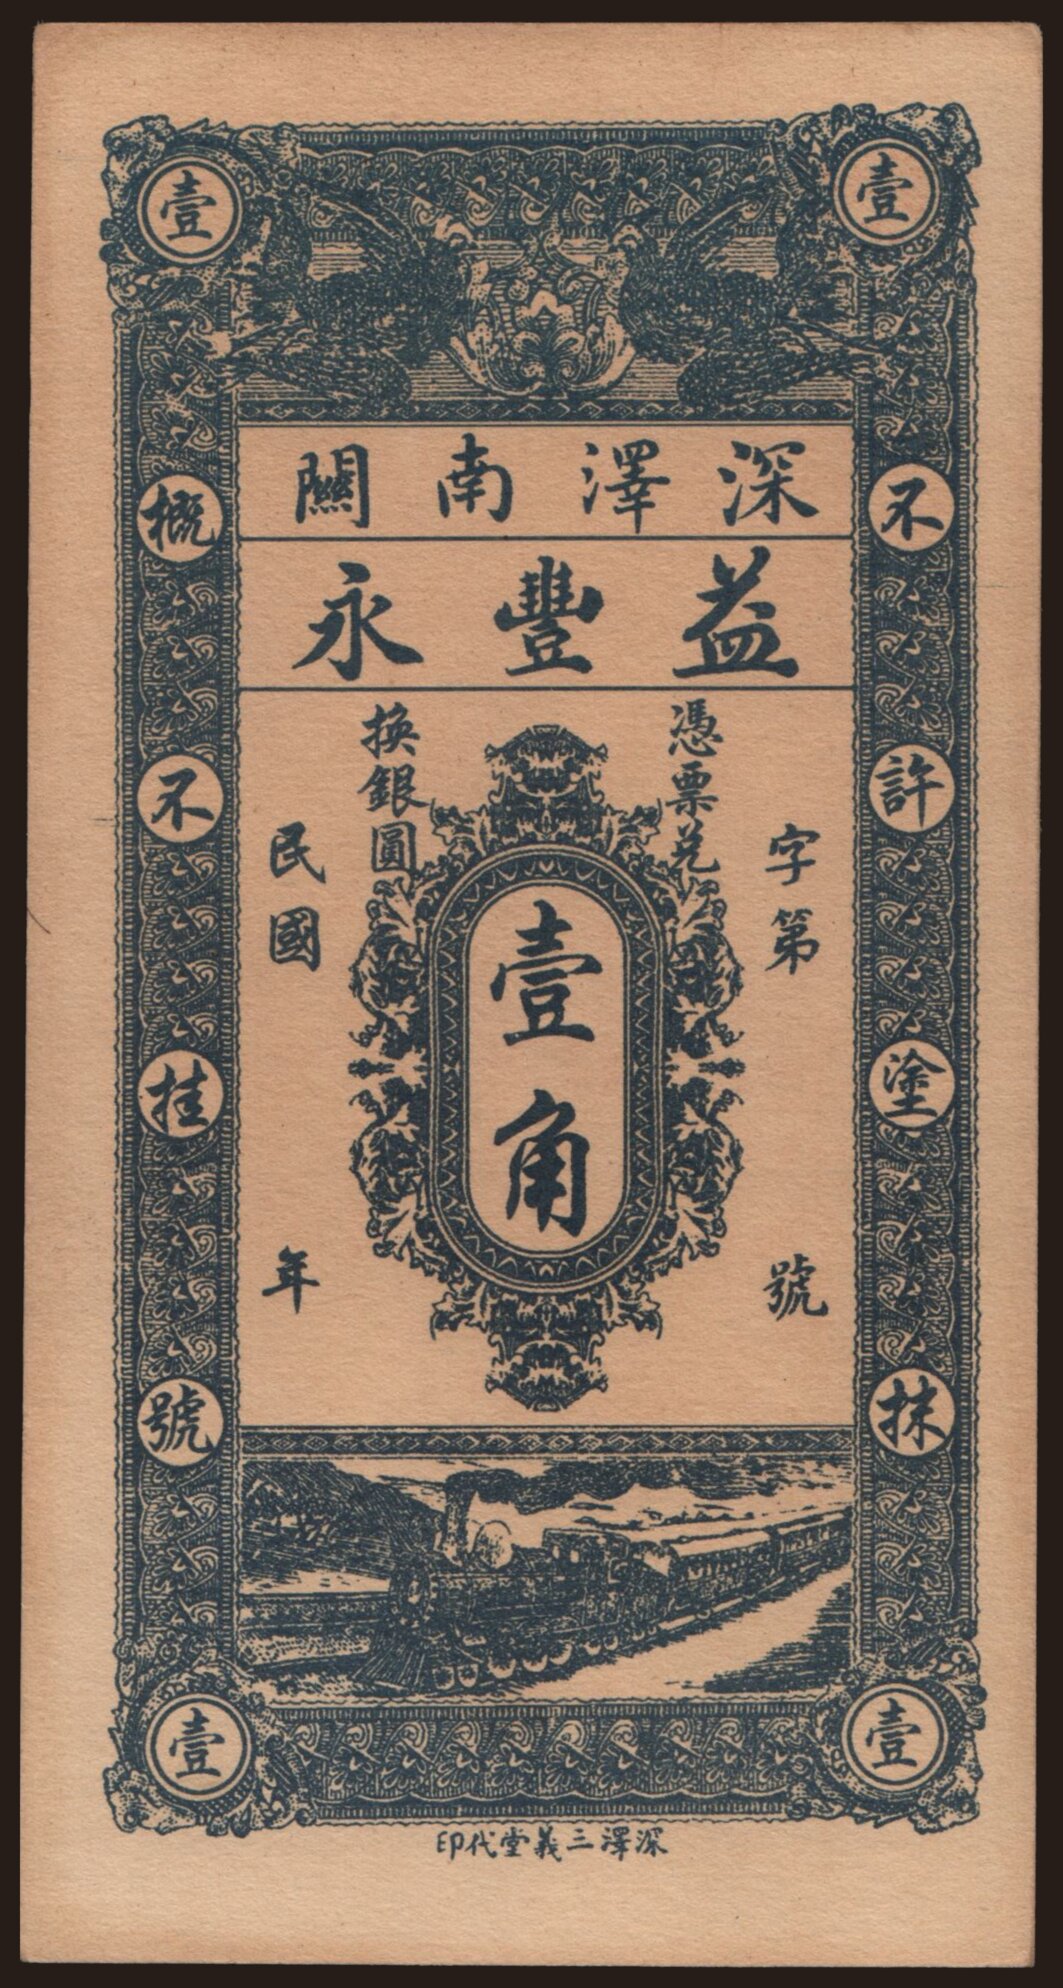 壹 壹
深澤南關
益豐永
不許塗抹
概不挂號
字第 號
憑票兑
換銀圓
壹角
民國 年
壹 壹
深澤三義堂代印